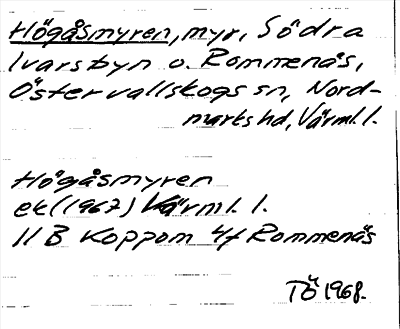 Högåsmyren, myr, Södra
Ivarsbyn o. Rommenäs,
Östervallskogs sn, Nord-
marks hd, Värml. l.
Högåsmyren
ek (1967) Värml. l.
11 B Koppom 4f Rommenäs
TÖ 1968.